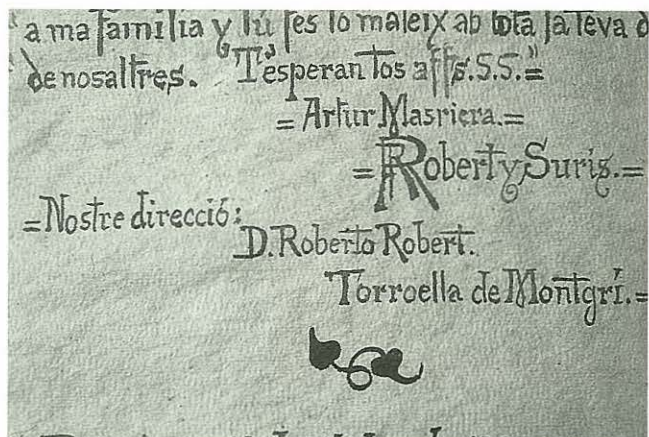 a ma familia y tú fes lo mateix ab tota la teva d
de nosaltres. T'esperan tos affs. S.S. =
= Artur Masriera. =
= Robert y Suris. =
= Nostre direcció:
D. Roberto Robert.
Torroella de Montgrí. =